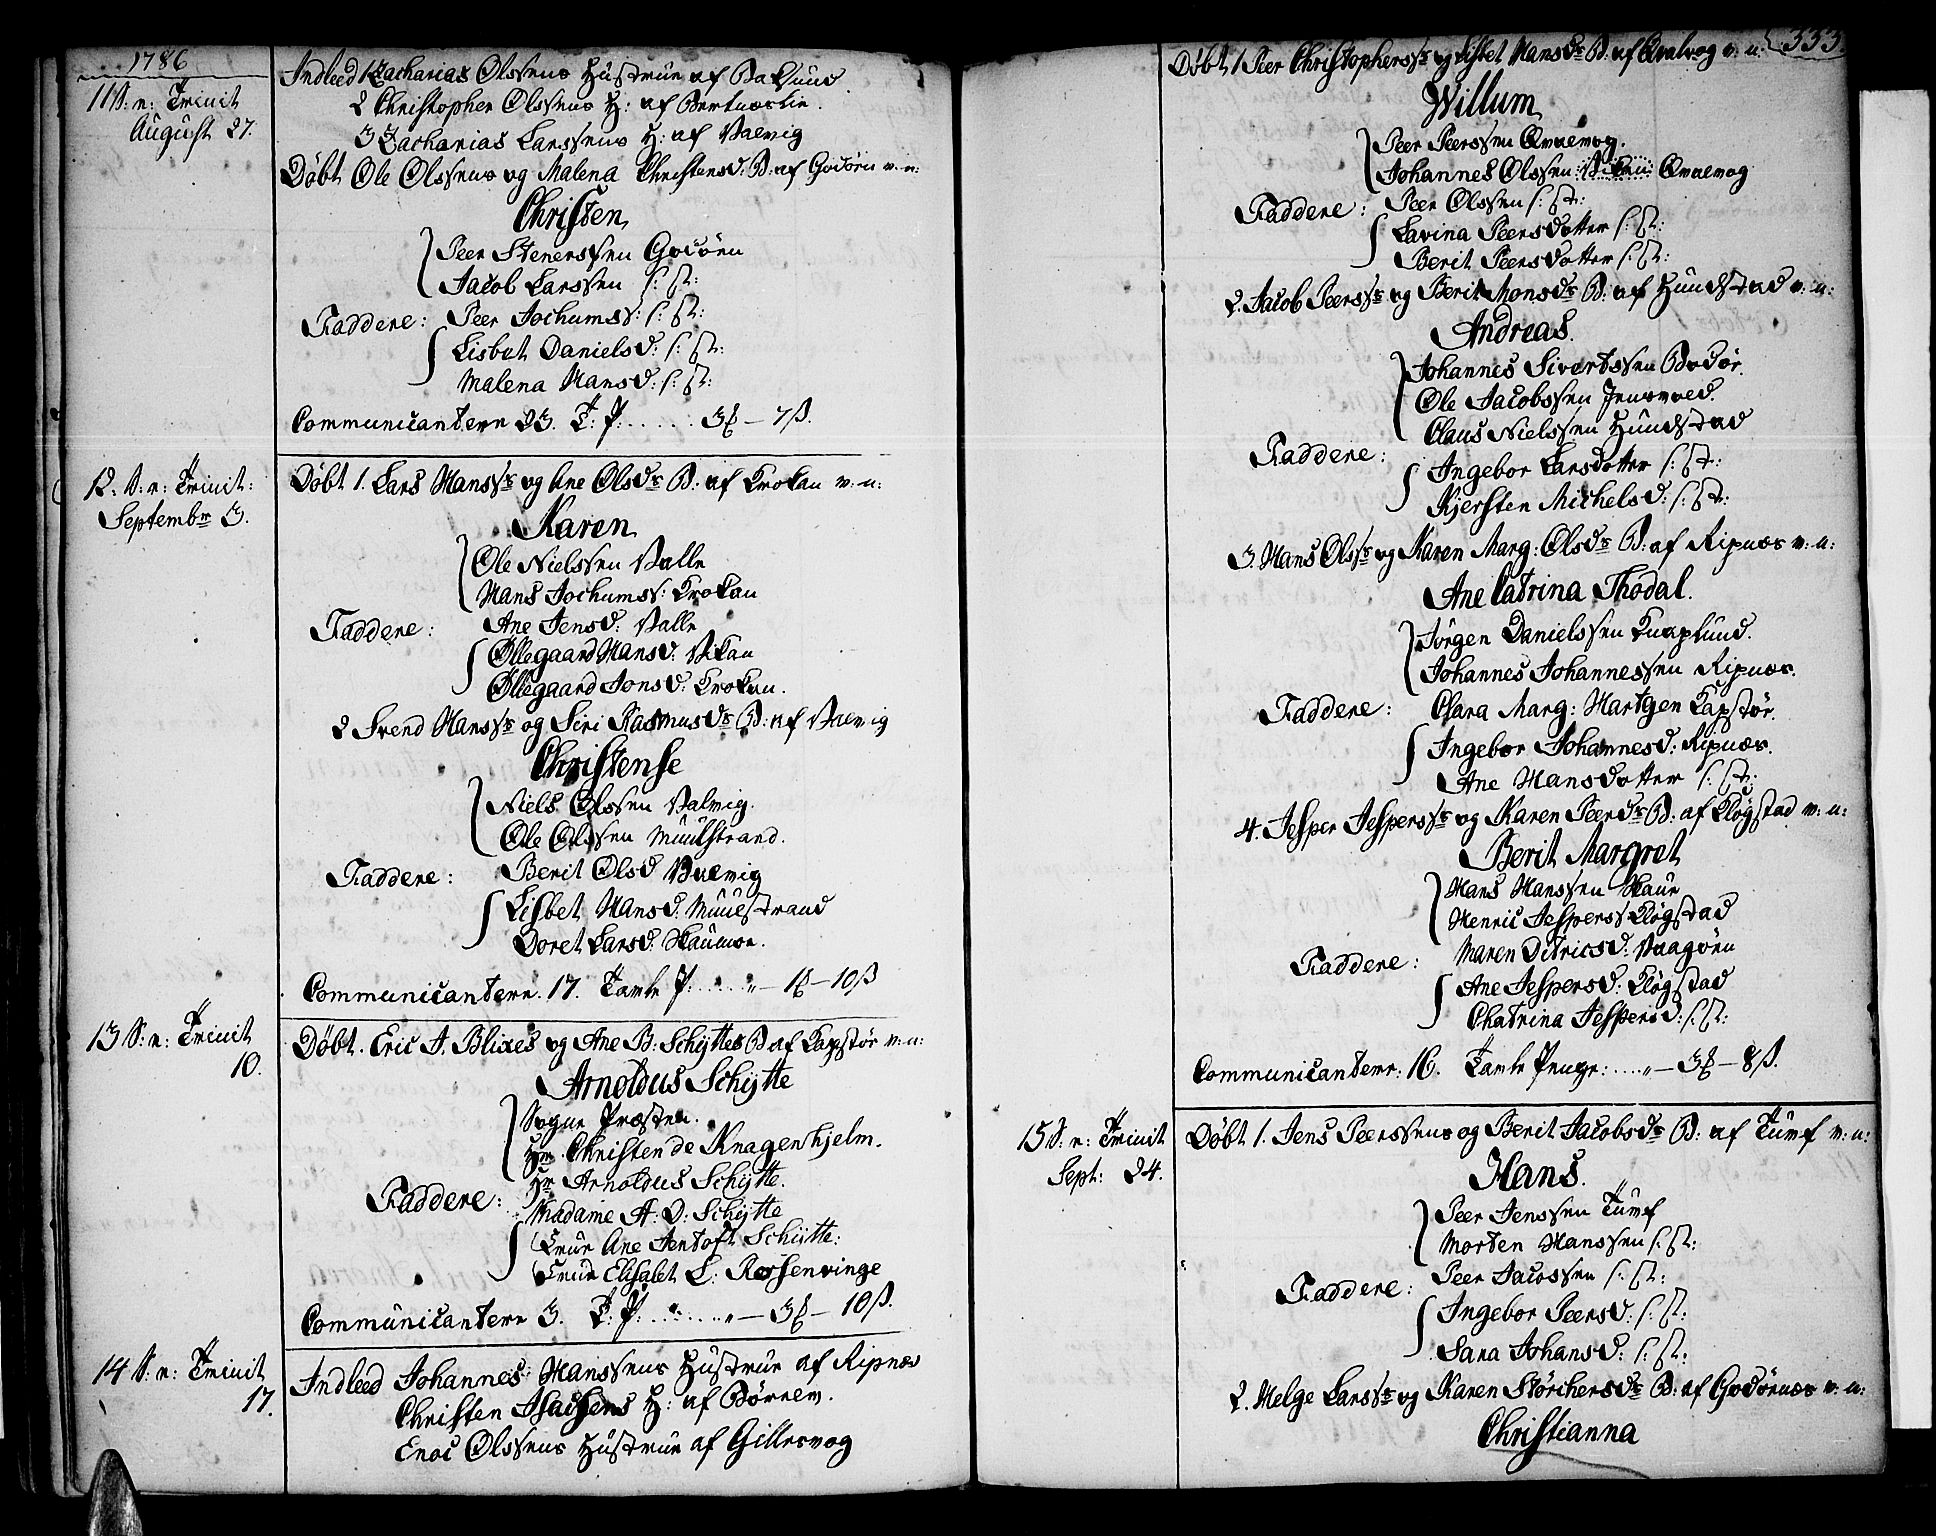 1786
11 S: n: Trinit
August 27.
Indleed 1 Zacharias Olssens Hustrue af
2 Christopher Olssens H: af
3 Zacharias Larssens H: af Valvig
Døbt Ole Olssens og Malena Christensd: B: af Godøen v: n:
Christen
Peer Stenerssen Godøen
Jacob Larssen s: St:
Faddere: Peer Jochumss: s: St:
Lisbet Danielsd: s: St:
Malena Hansd: s: St:
Communicantere 23. T: P: ...... 3 – 7 ß.
12. S: n: Trinit:
Septembr 3.
Døbt 1. Lars Hanssr og Ane Olsdr B: af Krokan v: n:
Karen
Ole Nielssen Valle
Hans Jochumss: Krokan
Faddere: Ane Jensd: Valle
Øllegaard Hansd: Vikan
Øllegaard Jonsd: Krokan.
2 Svend Hanssr og Siri Rasmusdr B: af Valvig
Christense
Niels Olssen Valvig.
Ole Olssen Muulstrand.
Faddere: Berit Olsd Valvig
Lisbet Hansd: Muulstrand
Doret Larsd:
Communicantere. 17. Tavle P: ..... „ – 1 – 10 ß
13 S: n: Trinit
10.
Døbt. Eric A. Blixes og Ane B: Schÿttes B af Kapstør v: n:
Arnoldus Schÿtte
Sogne Præsten.
Hr. Christen de Knagenhjelm.
Hr Arnoldus Schÿtte.
Faddere: Madame A: D: Schÿtte
Frue Ane Jentoft Schÿtte:
Frue Elisabet C: Rossenvinge
Communicantere 3. T: P: ...... „ – 3 – 10 ß.
14 S: n: Trinit
17.
Indleed Johannes Hanssens Hustrue af Ripnæs
Christen Isachsens H: af Børnev.
Enoc Olssens Hustrue af Gillesvog
333.
Døbt 1 Peer Christopherssr og Lisbet Hansdr B: af Qvalvog v: n:
Willum
Peer Peerssen Qvalvog.
Johannes Olssen Qvalvog
Faddere: Peer Olssen s: St:
Lavina Peersdotter s: St:
Berit Peersdotter s: St:
2. Jacob Peerssr og Berit Monsdr B: af Hundstad v: n:
Andreas.
Johannes Sivertssen Bodør.
Ole Jacobssen Jensvold.
Claus Nielssen Hundstad
Faddere:
Ingebor Larsdotter s: St:
Kjersten Michelsd: s: St:
3. Hans Olssr og Karen Marg: Olsdr B: af Ripnæs v: n:
Ane Catrina Thodal.
Jørgen Danielssen Knaplund.
Johannes Johannessen Ripnæs.
Faddere: Clara Marg: Hartgen Kapstør.
Ingebor Johannesd: Ripnæs.
Ane Hansdotter s: St:
4. Jesper Jesperssr og Karen Peerdr B: af Kløgstad v: n:
Berit Margret
Hans Hanssen Skaue
Henric Jesperss Kløgstad
Faddere: Maren Ditricsd: Vaagøen
Ane Jespersd: Kløgstad
Chatrina Jespersd: s: St:
Communicantere: 16. Tavle Penge: .... „ – 3 – 8 ß.
15 S: n: Trinit
Sept: 24.
Døbt 1. Jens Peerssens og Berit Jacobsdr B: af Tuuf v: n:
Hans.
Peer Jenssen Tuuf
Morten Hanssen s: St:
Faddere: Peer Jacobssen s: St:
Ingebor Peersd: s: St:
Sara Johansd: s: St:
2. Helge Larssr og Karen Størchersdr B: af Godøenæs v: n:
Christianna